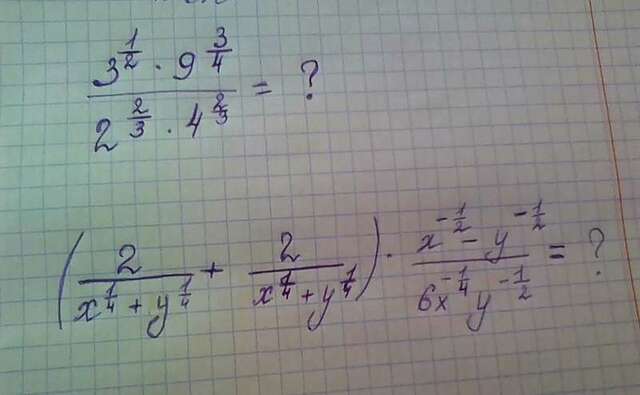 3^{\frac{1}{2}} · 9^{\frac{3}{4}}
2^{\frac{2}{3}} · 4^{\frac{2}{3}} = ?
(\frac{2}{x^{\frac{1}{4}} + y^{\frac{1}{4}}} + \frac{2}{x^{\frac{1}{4}} + y^{\frac{1}{4}}}) · \frac{x^{-\frac{1}{2}} - y^{-\frac{1}{2}}}{6x^{-\frac{1}{4}} y^{-\frac{1}{2}}} = ?